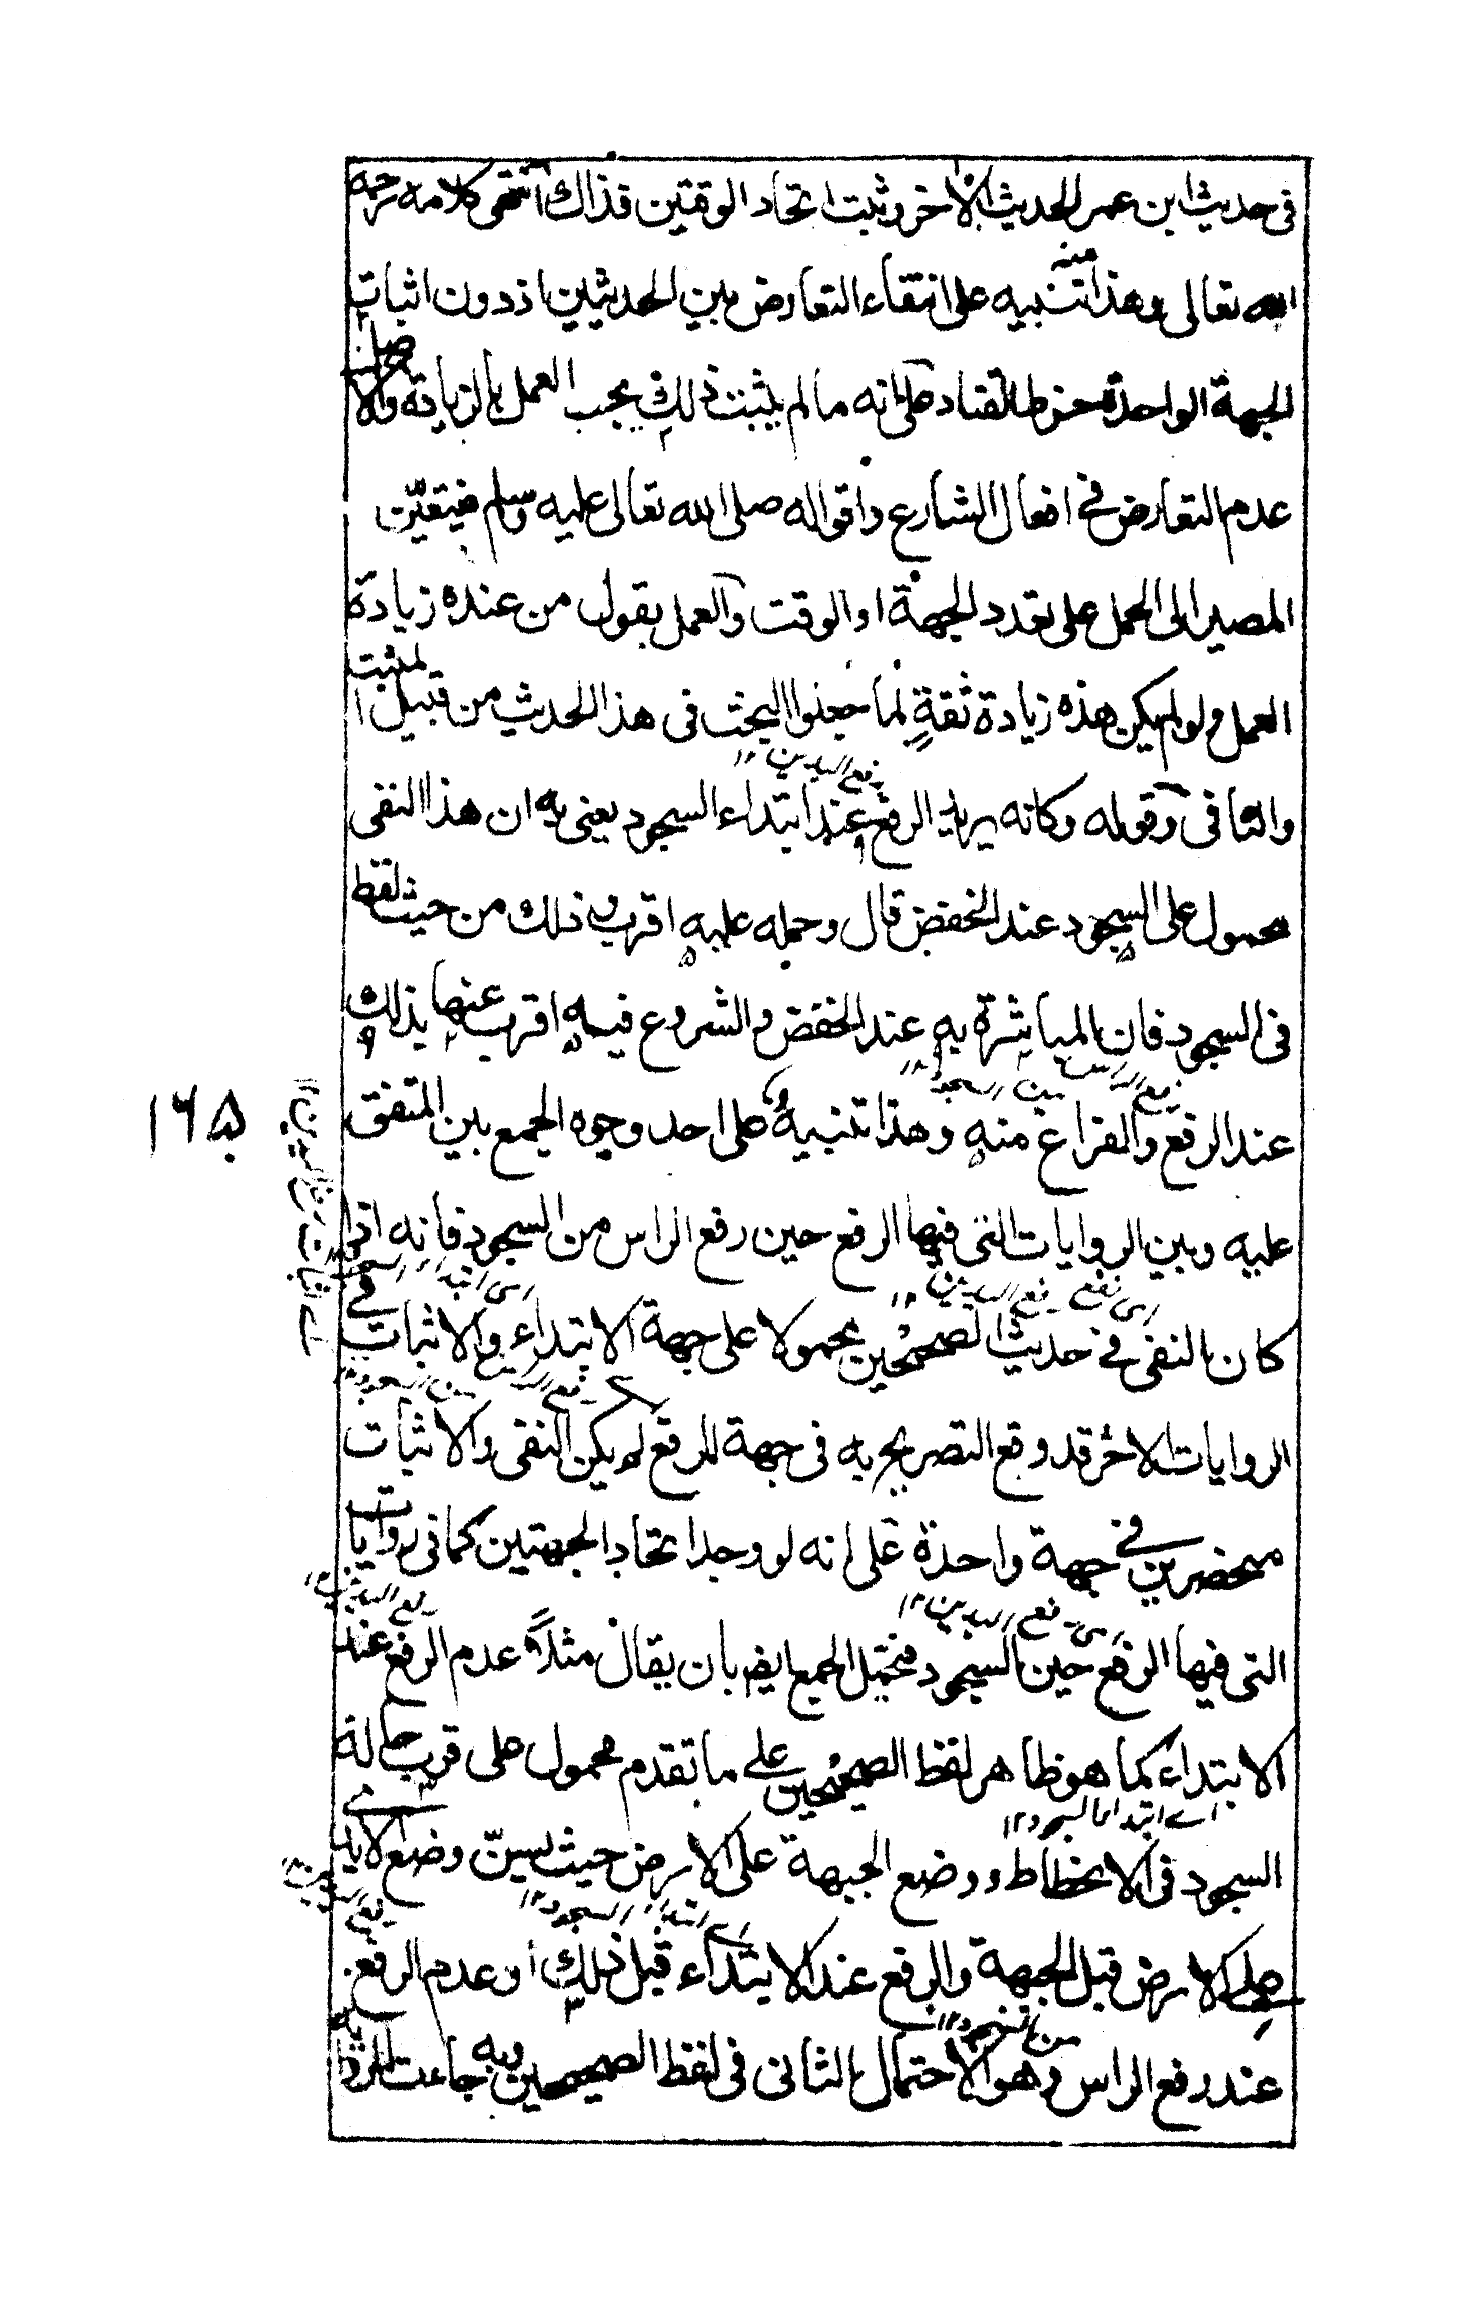 فى حديث ابن عمر الحديث الآخر وثبت اتحاد الوقتين فذاك انتهى كلامه رحمه
الله تعالى وهذا تنبيه منه على انتفاء التعارض بين الحديثين اذ دون اثبات
الجهة الواحدة خرط القتاد على انه ما لم يثبت ذلك يجب العمل بالزيادة والاصل
عدم التعارض فى افعال الشارع واقواله صلى الله تعالى عليه وسلم فيتعيّن
المصير الى الحمل على تعدد الجهة او الوقت والعمل بقول من عنده زيادة
العمل ولو لم يكن هذه زيادة ثقةٍ لما جعلوا البحث فى هذا الحديث من قبيل المثبت
والنافى وقوله وكانه يريد الرفع عند ابتداء السجود يعنى به ان هذا النفى
رفع اليدين ١٢
محمول على السجود عند الخفض قال وحمله عليه اقرب وذلك من حيث لفظ
فى السجود فان المباشرة به عند الخفض والشروع فيه اقرب عنها بذلك
عند الرفع والفراغ منه وهذا تنبيهٌ على احد وجوه الجمع بين المتفق
١٦٥
عليه وبين الروايات التى فيها الرفع حين رفع الراس من السجود فانه اذا
كان النفى فى حديث الصحيحين محمولا على جهة الابتداء والاثبات فى
اى نفى رفع اليدين ١٢
الروايات الاخر قد وقع التصريح به فى جهة الرفع لم يكن النفى والاثبات
منحصرين فى جهة واحدة على انه لو وجد اتحاد الجهتين كما فى روايات
التى فيها الرفع حين السجود فيحتمل الجمع ايضا بان يقال مثلاً عدم الرفع عند
اى رفع اليدين ١٢
رفع اليدين ١٢
الابتداء كما هو ظاهر لفظ الصحيحين على ما تقدم محمول على قرب حالة
السجود فى الانحطاط ووضع الجبهة على الارض حيث يسنّ وضع الايدى
اے ابتداء السجود ١٢
على الارض قبل الجبهة والرفع عند الابتداء قبل ذلك او عدم الرفع
اے ابتداء السجود ١٢
عند رفع الراس وهو الاحتمال الثانى فى لفظ الصحيحين وبه جاءت
من السجود ١٢